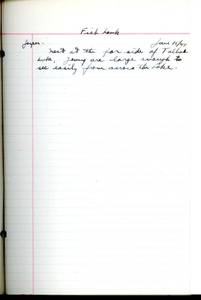 Fish Hawk
Jasper - June 18/44
Nest at the far side of Talbot
Lake, young are large enough to
see easily from across the Lake.